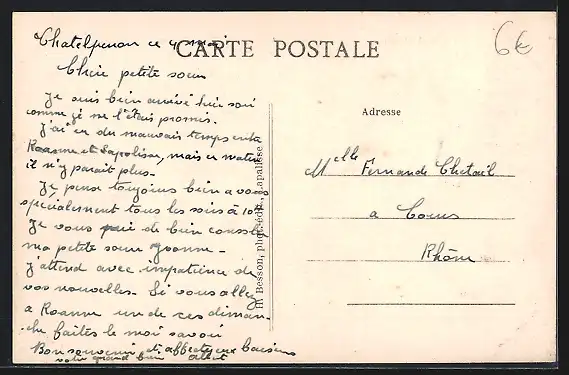 Chatelperron ce 4 mai
CARTE POSTALE
6€
Chère petite sœur
Je suis bien arrivé hier soir
comme je ne l'étais promis.
J'ai eu du mauvais temps entre
Roanne et Lapalisse, mais ce matin
il n'y parait plus.
Je pense toujours bien a vous
spécialement tous les soirs à 10h
Je vous prie de bien consoler
ma petite sœur Yvonne -
J'attend avec impatience de
vos nouvelles. Si vous allez
a Roanne un de ces diman-
che faites le moi savoir
Bon souvenir et affectueux baisers
votre grand Albert
H. Besson, phot.-édit., Lapalisse
Adresse
Melle Fernande Chetail
a Cours
Rhône